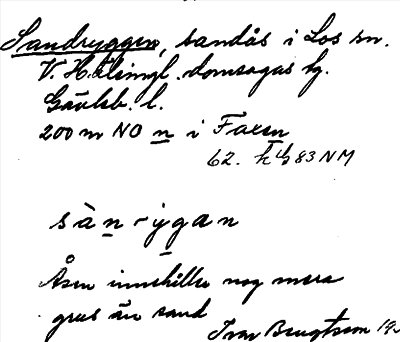 Sandryggen, sandås i Los sn.
V. Hälsingl. domsagas tg.
Gävleb. l.
200 m NO n i Faxen
62. 83 NM
sàn-ỳgan
Åsen innehåller nog mera
grus än sand
Ivar Bengtsson 19